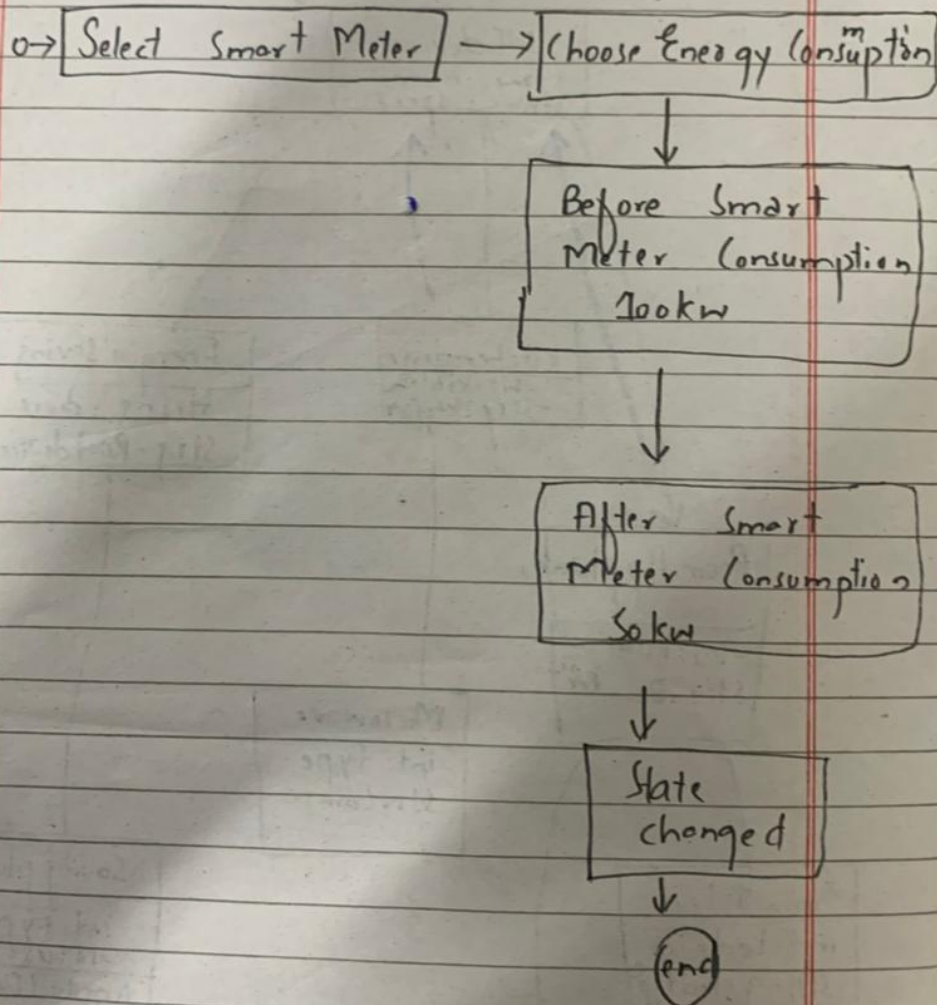 Select Smart Meter
Choose Energy Consumption
Before Smart
Meter Consumption
100kw
After Smart
Meter Consumption
50kw
State
changed
end